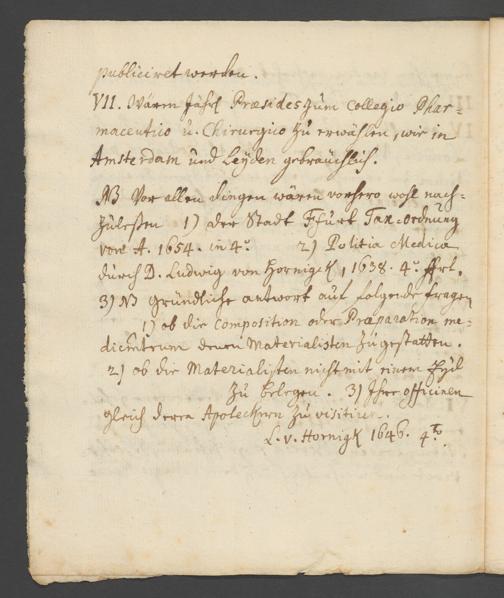 publiciret werden.
VII. Wären Jährl Præsides zum Collegio Phar=
maceutico u. Chirurgico zu erwählen, wie in
Amsterdam und Leyden gebräuchlich.
NB Vor allen dingen wären vorhero wohl nach=
zulesen 1) der Stadt Ffurt Tax-Ordnung
von A. 1654. in 4º 2) Politia Medica
durch D. Ludwig von Hornigck, 1638. 4º ffrt.
3) NB gründliche antwort auf folgende fragen
1) ob die Composition oder Præparation me=
dicamentorum denen Materialisten zu gestatten.
2) ob die Materialisten nicht mit einem Eyd
zu belegen. 3) Ihre officinen
gleich deren Apotheckern zu visitiren.
L. v. Hornigk 1646. 4to